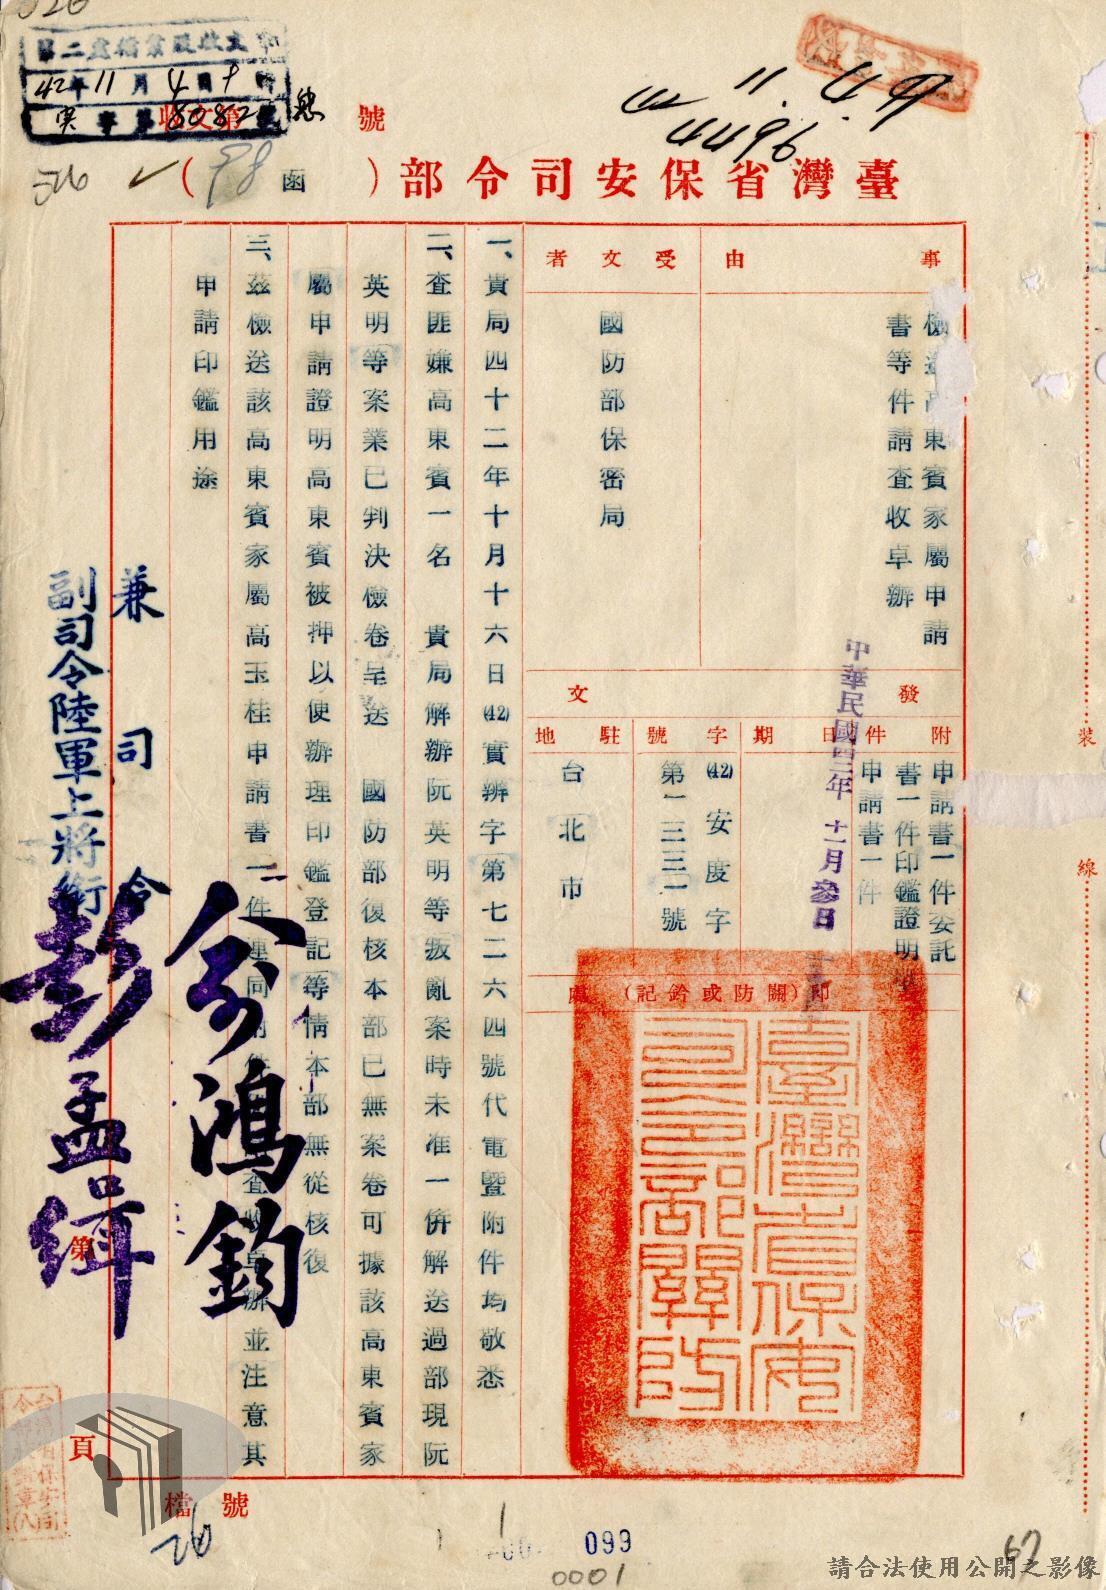 第二處檔案股收文
42年11月4日
實字第80842號
收文第 號
42.11.4.
4496
臺灣省保安司令部
（ 函 ）
事由
檢送高東賓家屬申請
書等件請查收卓辦
受文者
國防部保密局
發文
附件
申請書一件委託
書一件印鑑證明
申請書一件
日期
中華民國四二年十一月參日
字號
(42)安度字
第一三三一號
駐地
台北市
蓋印（關防或鈐記）處
臺灣省保安司令部關防
一、貴局四十二年十月十六日(42)實辦字第七二六四號代電暨附件均敬悉
二、查匪嫌高東賓一名 貴局解辦阮英明等叛亂案時未准一併解送過部現阮
英明等案業已判決檢卷呈送 國防部復核本部已無案卷可據該高東賓家
屬申請證明高東賓被押以便辦理印鑑登記等情本部無從核復
三、茲檢送該高東賓家屬高玉桂申請書一件連同附件 查收卓辦並注意其
申請印鑑用途
兼司令 俞鴻鈞
副司令陸軍上將銜 彭孟緝
第 頁
檔 號
26
099
0001
67
裝
線
請合法使用公開之影像